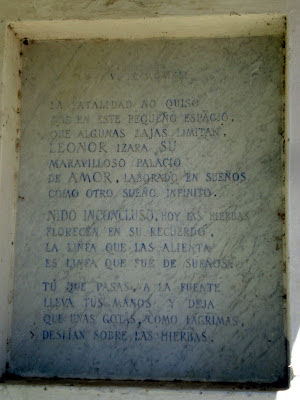 LA FATALIDAD NO QUISO
QUE EN ESTE PEQUEÑO ESPACIO,
QUE ALGUNAS LAJAS LIMITAN,
LEONOR IZARA SU
MARAVILLOSO PALACIO
DE AMOR, LABORADO EN SUEÑOS
COMO OTRO SUEÑO INFINITO.
NIDO INCONCLUSO, HOY LAS HIERBAS
FLORECEN EN SU RECUERDO,
LA LINFA QUE LAS ALIENTA
ES LINFA QUE FUE DE SUEÑOS.
TÚ QUE PASAS, A LA FUENTE
LLEVA TUS MANOS Y DEJA
QUE UNAS GOTAS, COMO LÁGRIMAS,
DESLÍAN SOBRE LAS HIERBAS.